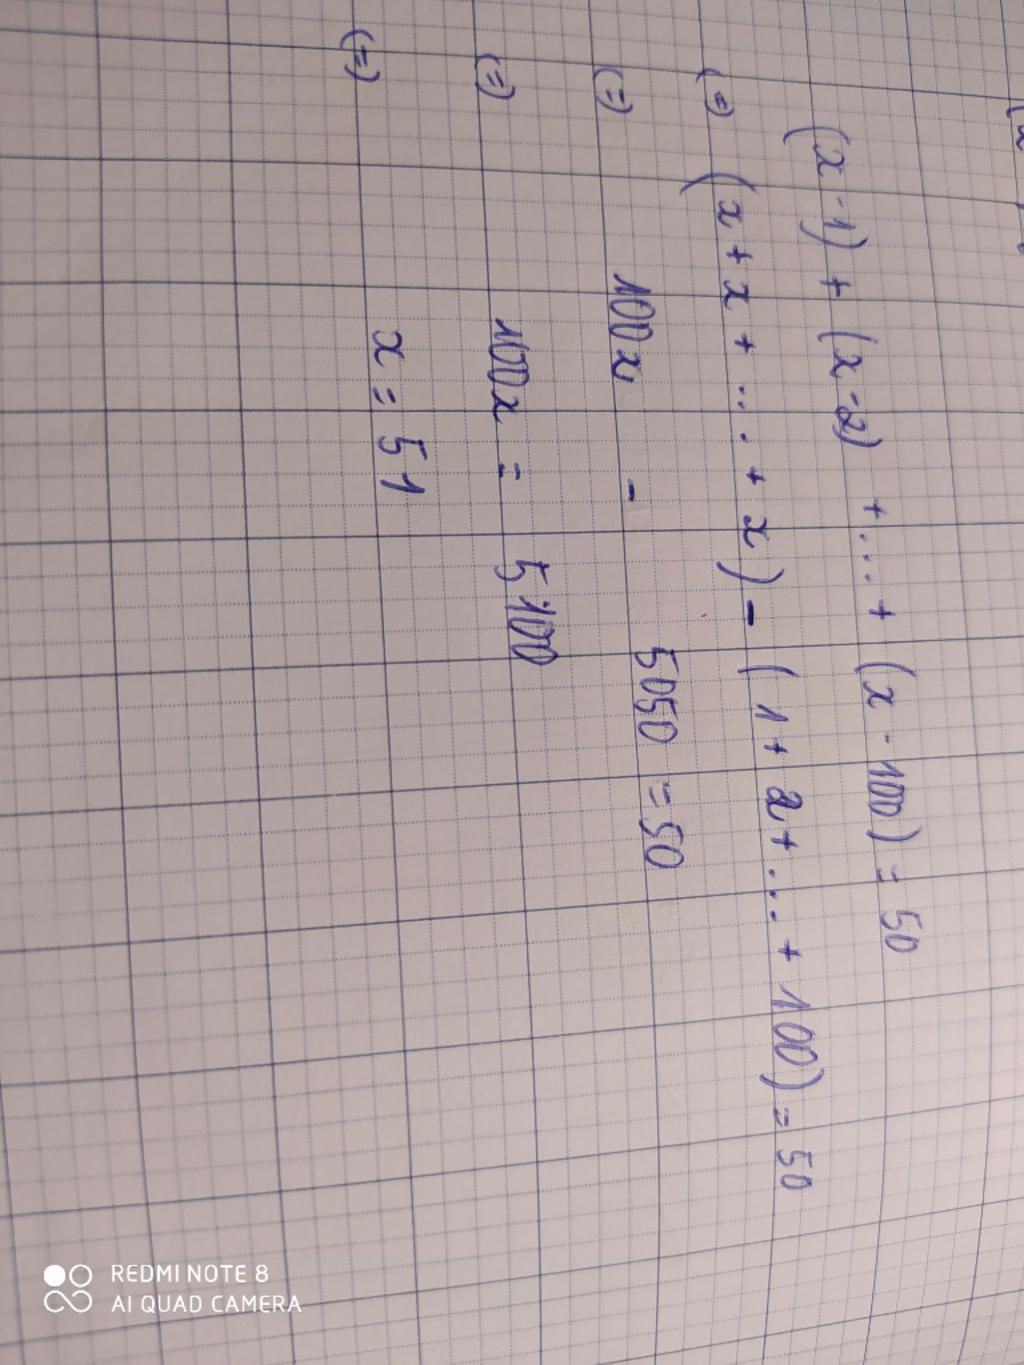 (x - 1) + (x - 2) + ... + (x - 100) = 50
(=) (x + x + ... + x) - (1 + 2 + ... + 100) = 50
(=) 100x - 5050 = 50
(=) 100x = 5100
(=) x = 51
REDMI NOTE 8
AI QUAD CAMERA